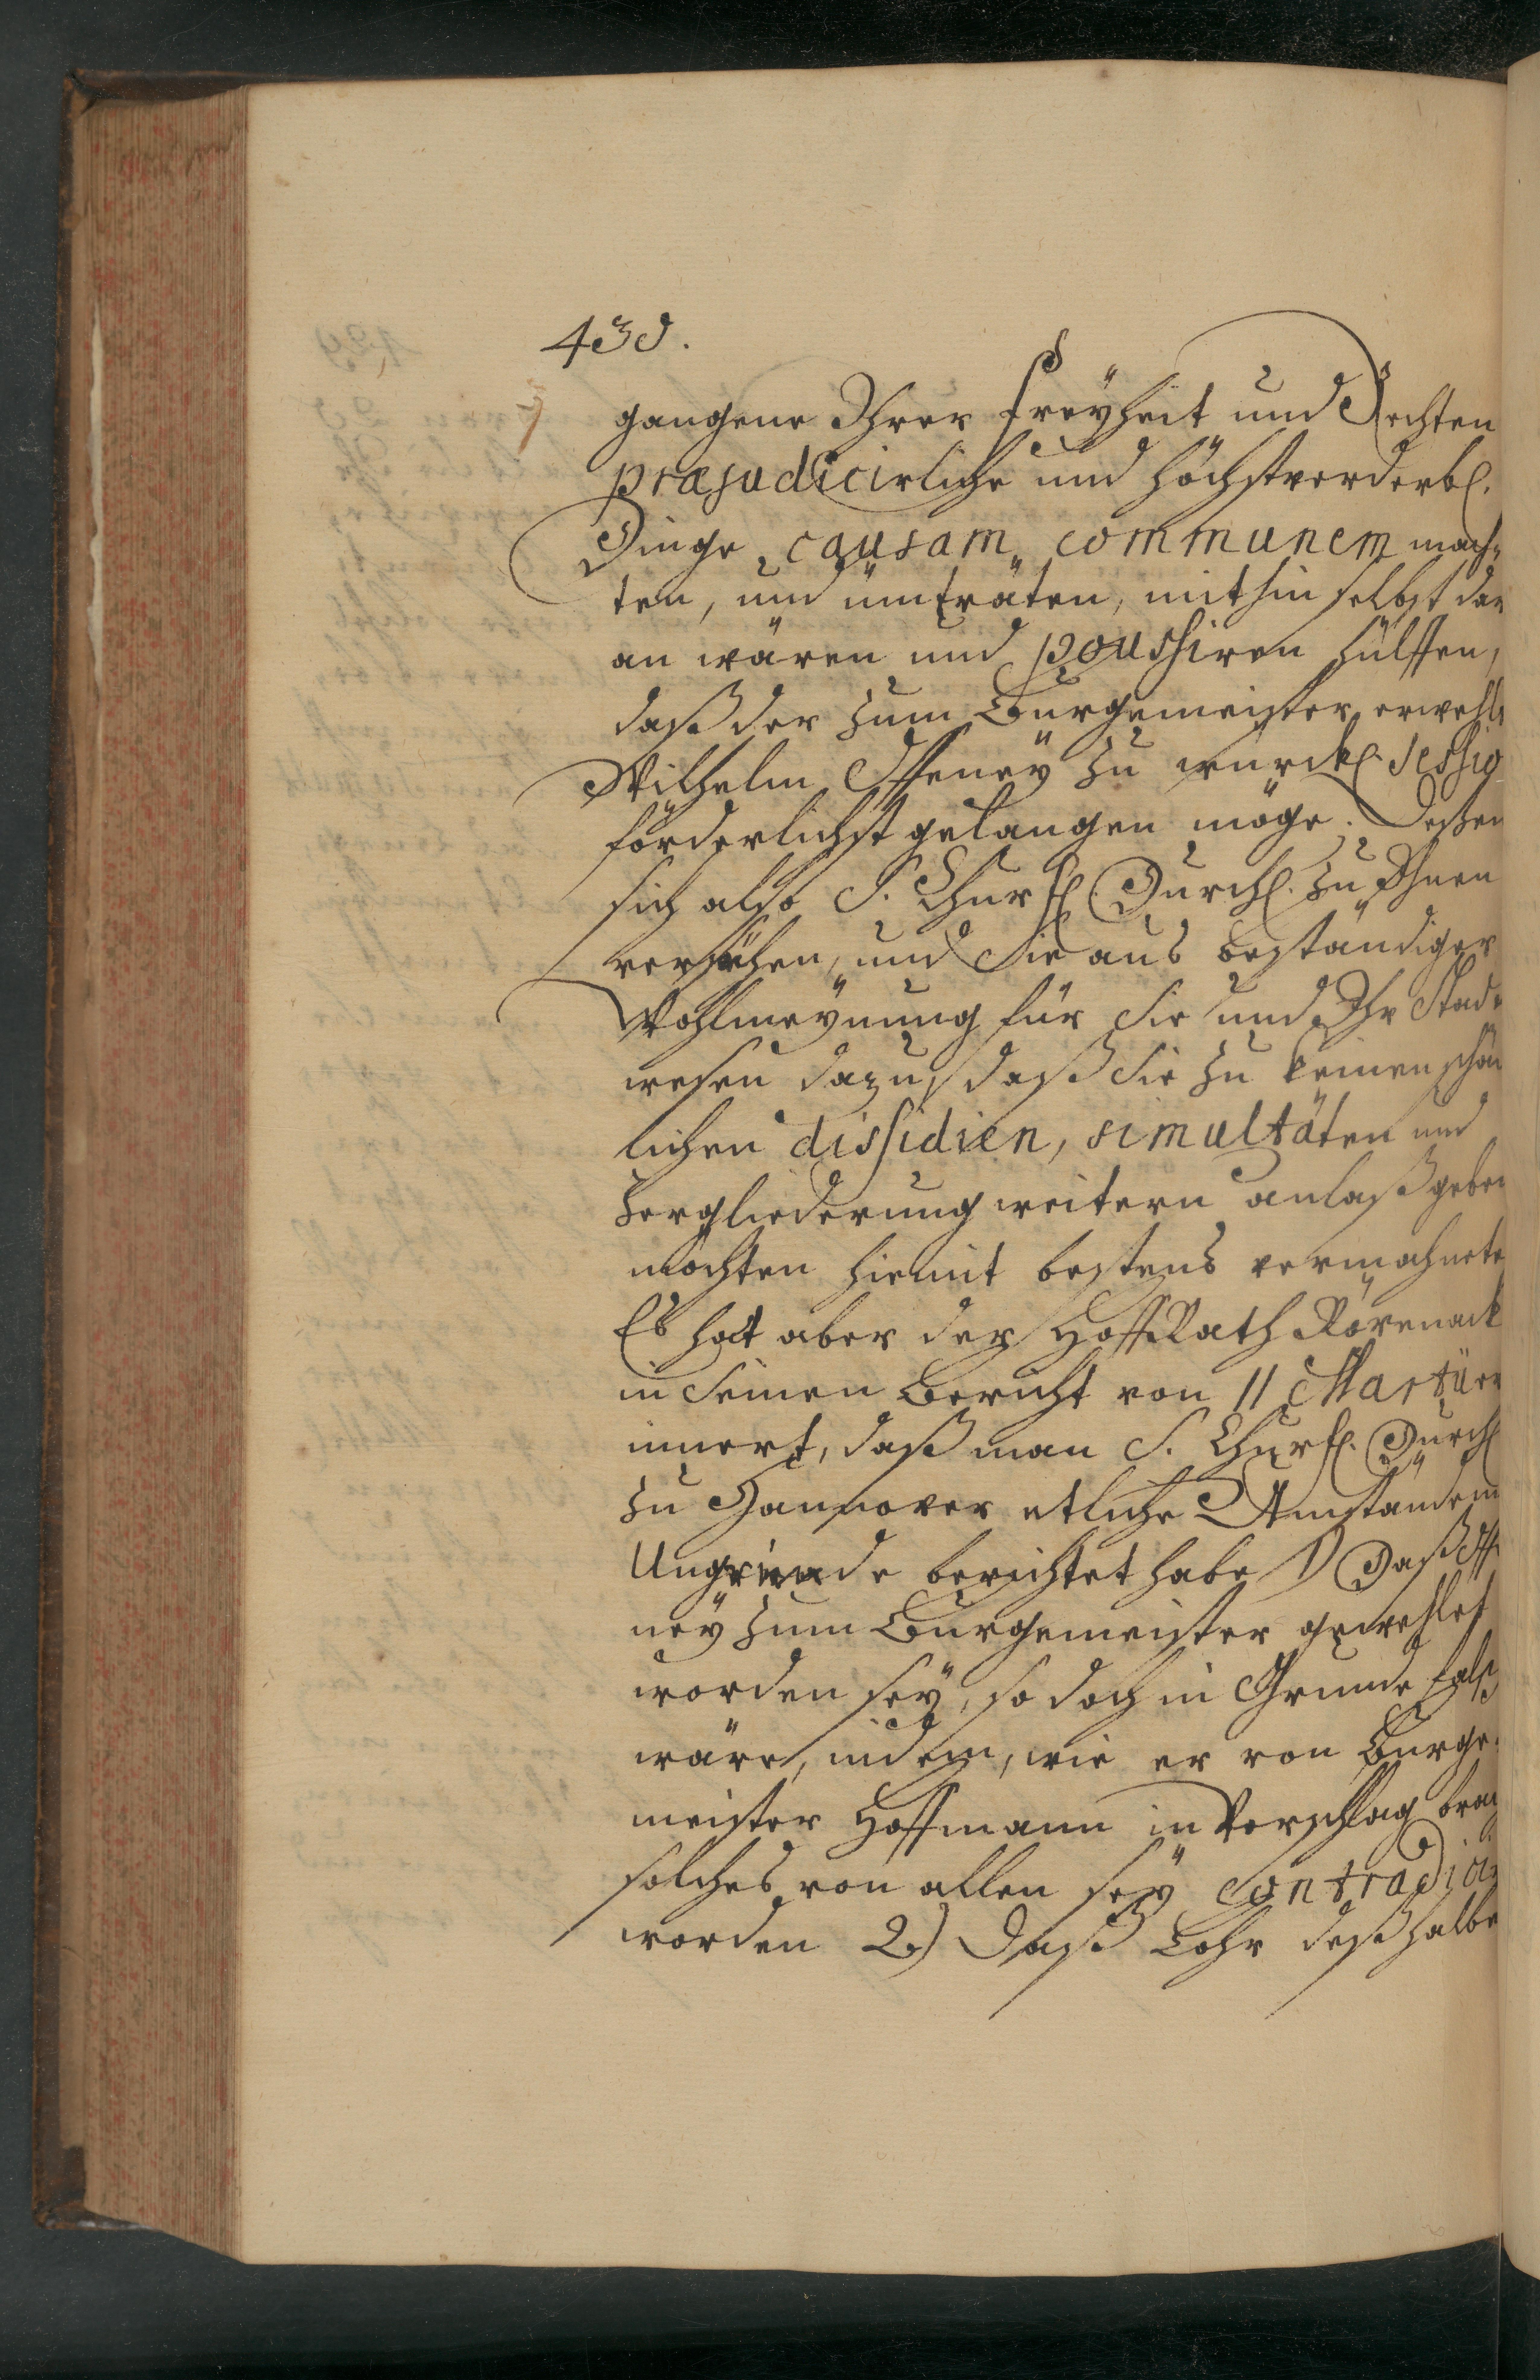 430.
gangene Ihrer Freÿheit und Rechten
præjudicirliche und höchstverderbl.
Dinge causam communem mach¬
ten, und üm träten, mithin selbst dar
an wären und poussiren hülffen,
daß der zum Burgemeister erwehlt
Wilhelm Offeneÿ zu würckl. sessio
förderlichst gelangen möge. Deßen
sich also S. Churfl. Durchl. zu Ihnen
versehen, und Sie aus beständiger
Wohlmeÿnung für Sie und Ihr Stad¬
wesen dazu, daß Sie zu keinen schäd
lichen dissidien, simultäten und
Zergliederung weitern anlaß geben
mochten hiemit bestens vermahnete
Es hat aber der HoffRath Körenack
in Seinen Bericht von 11 Martii er
innert, daß man S. Churfl. Durchl
zu Hannover etliche Umstände in
Ungrunde berichtet habe 1) Daß Offe
neÿ zum Burgemeister gewehlet
worden seÿ, so doch in Grunde falsch
wäre, indem, wie er von Burge¬
meister Hoffmann in Vorschlag brac
solches von allen seÿ contradici
worden 2.) Daß Lohr deßhalben